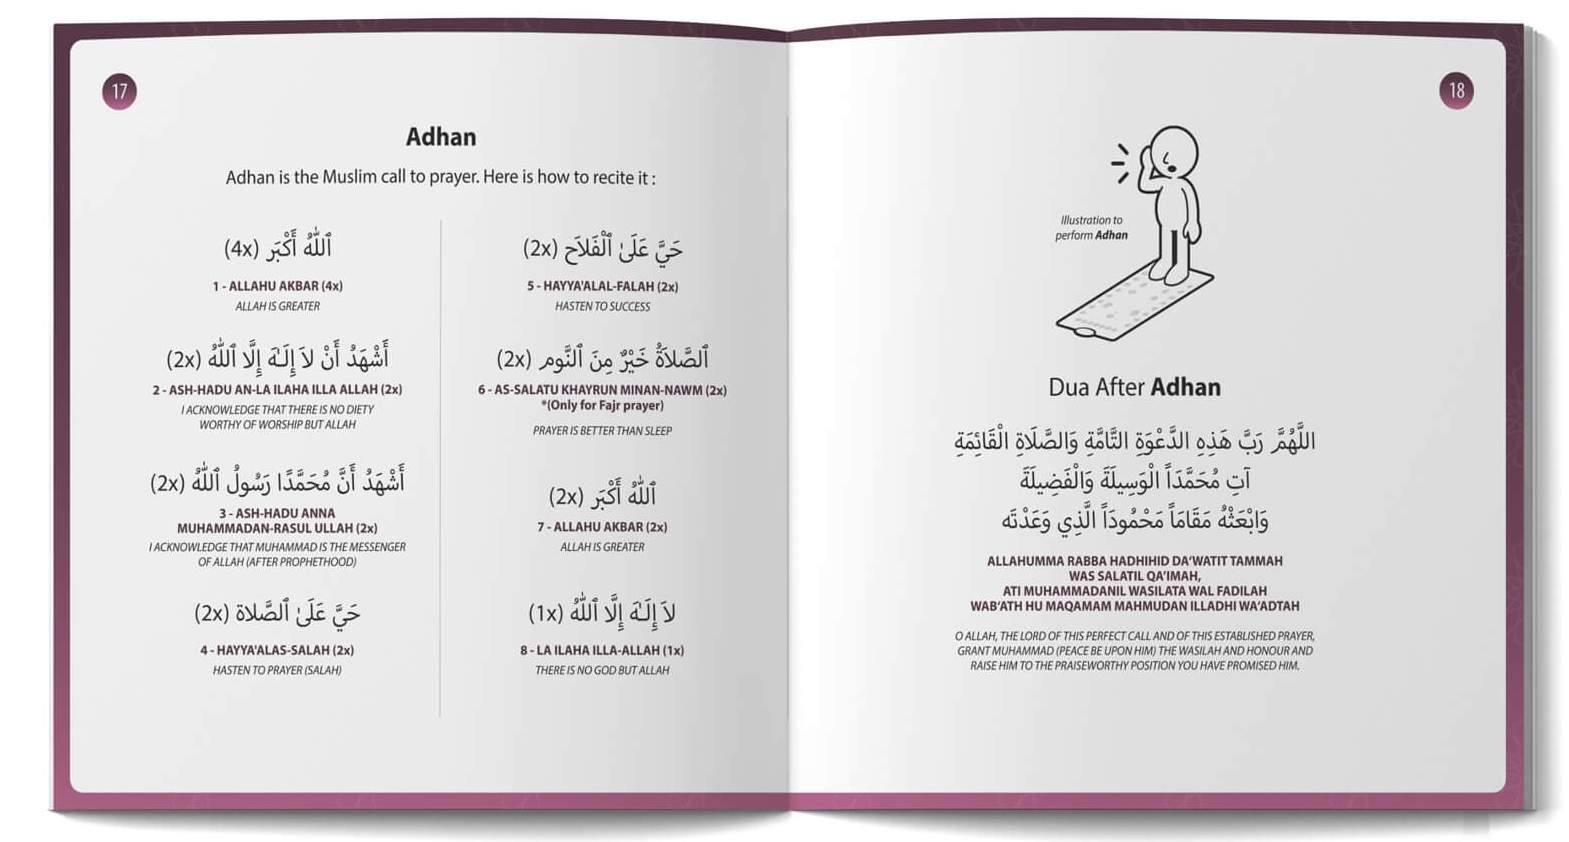 17
Adhan
Adhan is the Muslim call to prayer. Here is how to recite it :
ٱللّٰهُ أَكْبَر (4x)
1 - ALLAHU AKBAR (4x)
ALLAH IS GREATER
أَشْهَدُ أَنْ لاَ إِلَـٰهَ إِلَّا ٱللّٰهُ (2x)
2 - ASH-HADU AN-LA ILAHA ILLA ALLAH (2x)
I ACKNOWLEDGE THAT THERE IS NO DIETY
WORTHY OF WORSHIP BUT ALLAH
أَشْهَدُ أَنَّ مُحَمَّدًا رَسُولُ ٱللّٰهُ (2x)
3 - ASH-HADU ANNA
MUHAMMADAN-RASUL ULLAH (2x)
I ACKNOWLEDGE THAT MUHAMMAD IS THE MESSENGER
OF ALLAH (AFTER PROPHETHOOD)
حَيَّ عَلَىٰ ٱلصَّلاة (2x)
4 - HAYYA'ALAS-SALAH (2x)
HASTEN TO PRAYER (SALAH)
حَيَّ عَلَىٰ ٱلْفَلاَح (2x)
5 - HAYYA'ALAL-FALAH (2x)
HASTEN TO SUCCESS
ٱلصَّلاَةُ خَيْرٌ مِنَ ٱلنَّوم (2x)
6 - AS-SALATU KHAYRUN MINAN-NAWM (2x)
*(Only for Fajr prayer)
PRAYER IS BETTER THAN SLEEP
ٱللّٰهُ أَكْبَر (2x)
7 - ALLAHU AKBAR (2x)
ALLAH IS GREATER
لاَ إِلَـٰهَ إِلَّا ٱللّٰهُ (1x)
8 - LA ILAHA ILLA-ALLAH (1x)
THERE IS NO GOD BUT ALLAH
18
Illustration to
perform Adhan
Dua After Adhan
اللَّهُمَّ رَبَّ هَذِهِ الدَّعْوَةِ التَّامَّةِ وَالصَّلَاةِ الْقَائِمَةِ
آتِ مُحَمَّدَاً الْوَسِيلَةَ وَالْفَضِيلَةَ
وَابْعَثْهُ مَقَامَاً مَحْمُودَاً الَّذِي وَعَدْتَه
ALLAHUMMA RABBA HADHIHID DA'WATIT TAMMAH
WAS SALATIL QA'IMAH,
ATI MUHAMMADANIL WASILATA WAL FADILAH
WAB'ATH HU MAQAMAM MAHMUDAN ILLADHI WA'ADTAH
O ALLAH, THE LORD OF THIS PERFECT CALL AND OF THIS ESTABLISHED PRAYER,
GRANT MUHAMMAD (PEACE BE UPON HIM) THE WASILAH AND HONOUR AND
RAISE HIM TO THE PRAISEWORTHY POSITION YOU HAVE PROMISED HIM.